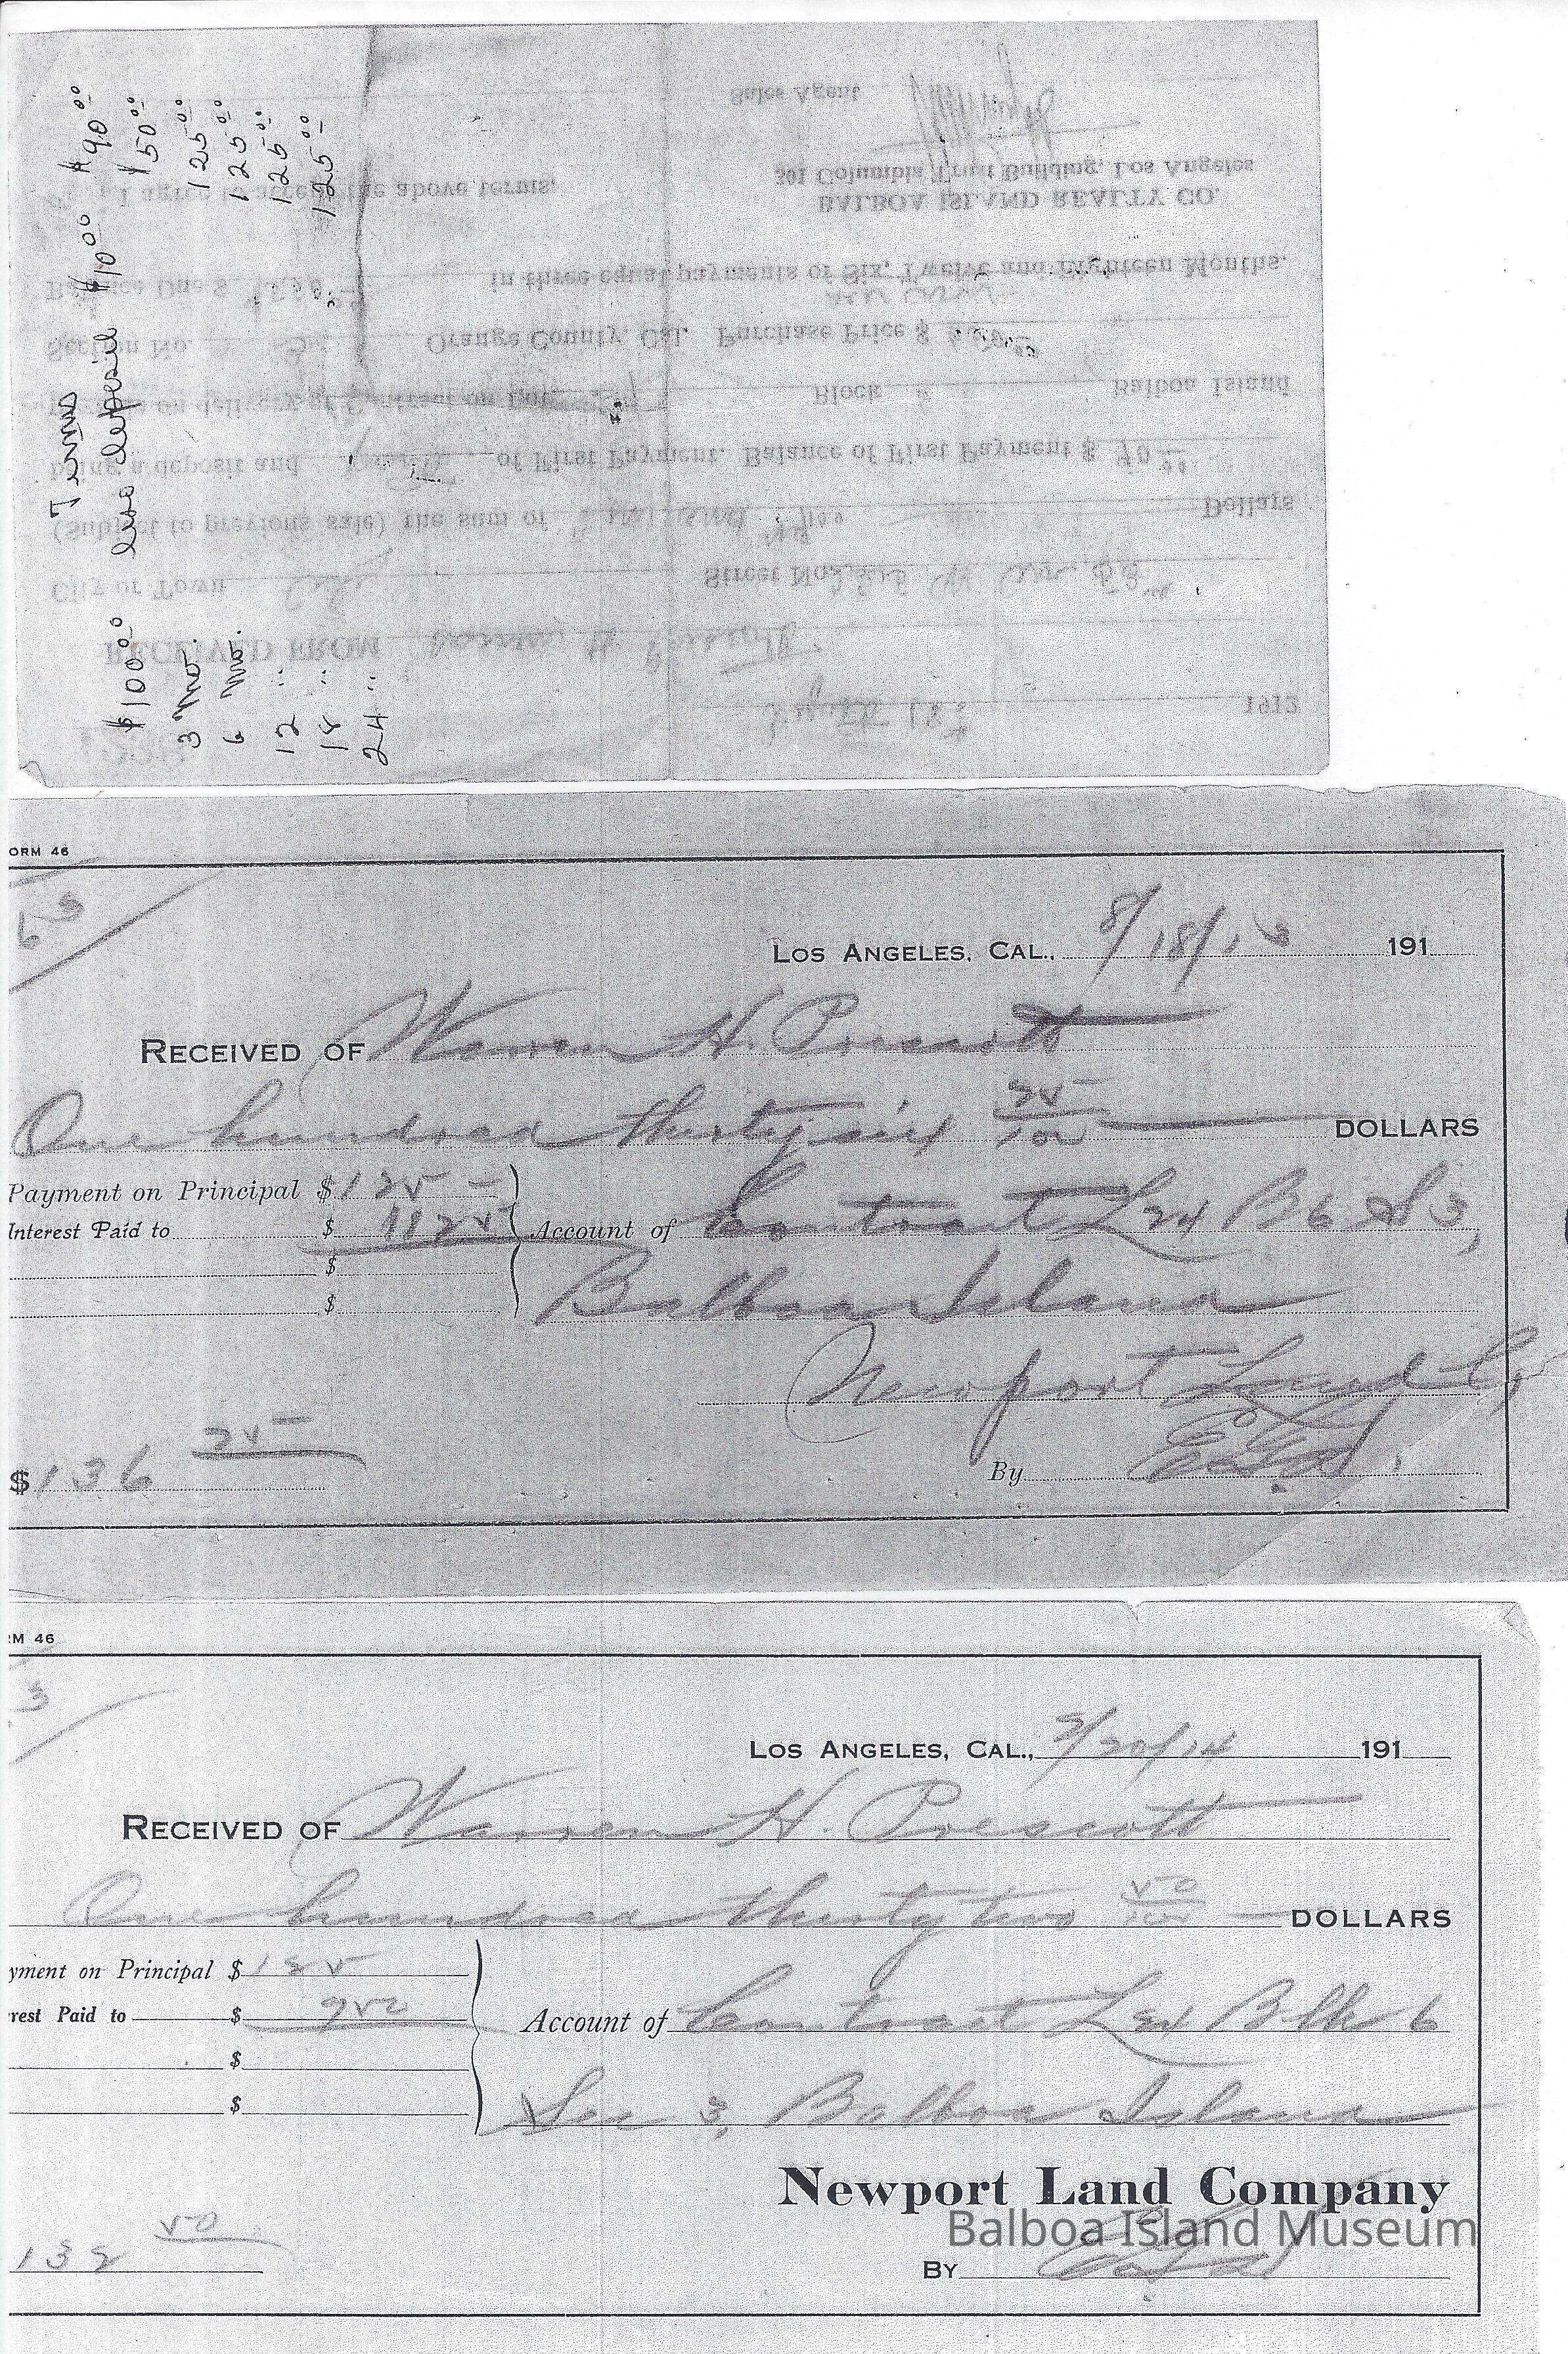 Terms
$100.00 less deposit $10.00 $90.00
3 mo. 150.00
6 mo. 125.00
12 " 125.00
18 " 125.00
24 " 125.00
1912
RECEIVED FROM Warren H Prescott
City or Town Street No.
(Subject to previous sale) the sum of Ten and no Dollars
being a deposit and of First Payment. Balance of First Payment $ 90.00
on delivery of Contract on Lot 24 Block 6 Balboa Island
Section No. Orange County, Cal. Purchase Price $
Balance Due $ in three equal payments of Six, Twelve and Eighteen Months.
BALBOA ISLAND REALTY CO.
I agree to accept the above terms.
301 Columbia Trust Building, Los Angeles
Sales Agent
ORM 46
63
LOS ANGELES, CAL., 8/18/13 191
RECEIVED OF Warren H. Prescott
One hundred thirty six 25/100 DOLLARS
Payment on Principal $ 125 -
Interest Paid to $ 11 25 Account of Contract L 24 B 6 S 3,
$
$
Balboa Island
Newport Land Co
$ 136 25
By
RM 46
3
LOS ANGELES, CAL., 3/20/14 191
RECEIVED OF Warren H. Prescott
One hundred thirty two 50/100 DOLLARS
yment on Principal $ 125
rest Paid to $ 7 50 Account of Contract L 24 Blk 6
$
$
Sec 3, Balboa Island
Newport Land Company
Balboa Island Museum
132 50
BY